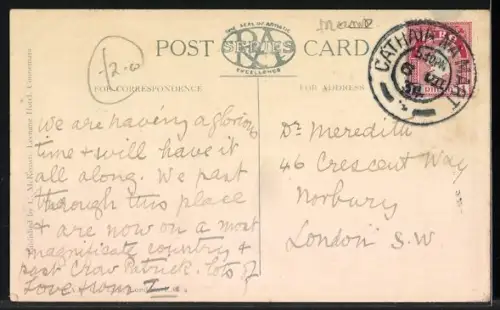 THE SEAL OF ARTISTIC
RA
SERIES
EXCELLENCE
POST CARD
£2.00
FOR CORRESPONDENCE
FOR ADDRESS
CATHAIR NA MART
We are having a glorious
time & will have it
all along. We past
through this place
& are now on a most
magnificate country &
past Crow Patrick. lots of
love
Dr Meredith
46 Crescent Way
Norbury
London S.W